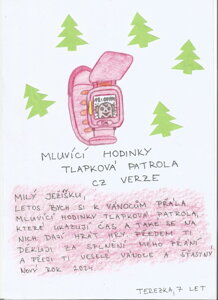 MLUVÍCÍ HODINKY
TLAPKOVÁ PATROLA
CZ VERZE
MILÝ JEŽÍŠKU,
LETOS BYCH SI K VÁNOCŮM PŘÁLA
MLUVÍCÍ HODINKY TLAPKOVÁ PATROLA,
KTERÉ UKAZUJÍ ČAS A TAKÉ SE NA
NICH DAJÍ HRÁT HRY. PŘEDEM TI
DĚKUJI ZA SPLNĚNÍ MÉHO PŘÁNÍ
A PŘEJI TI VESELÉ VÁNOCE A ŠŤASTNÝ
NOVÝ ROK 2024
TEREZKA, 7 LET